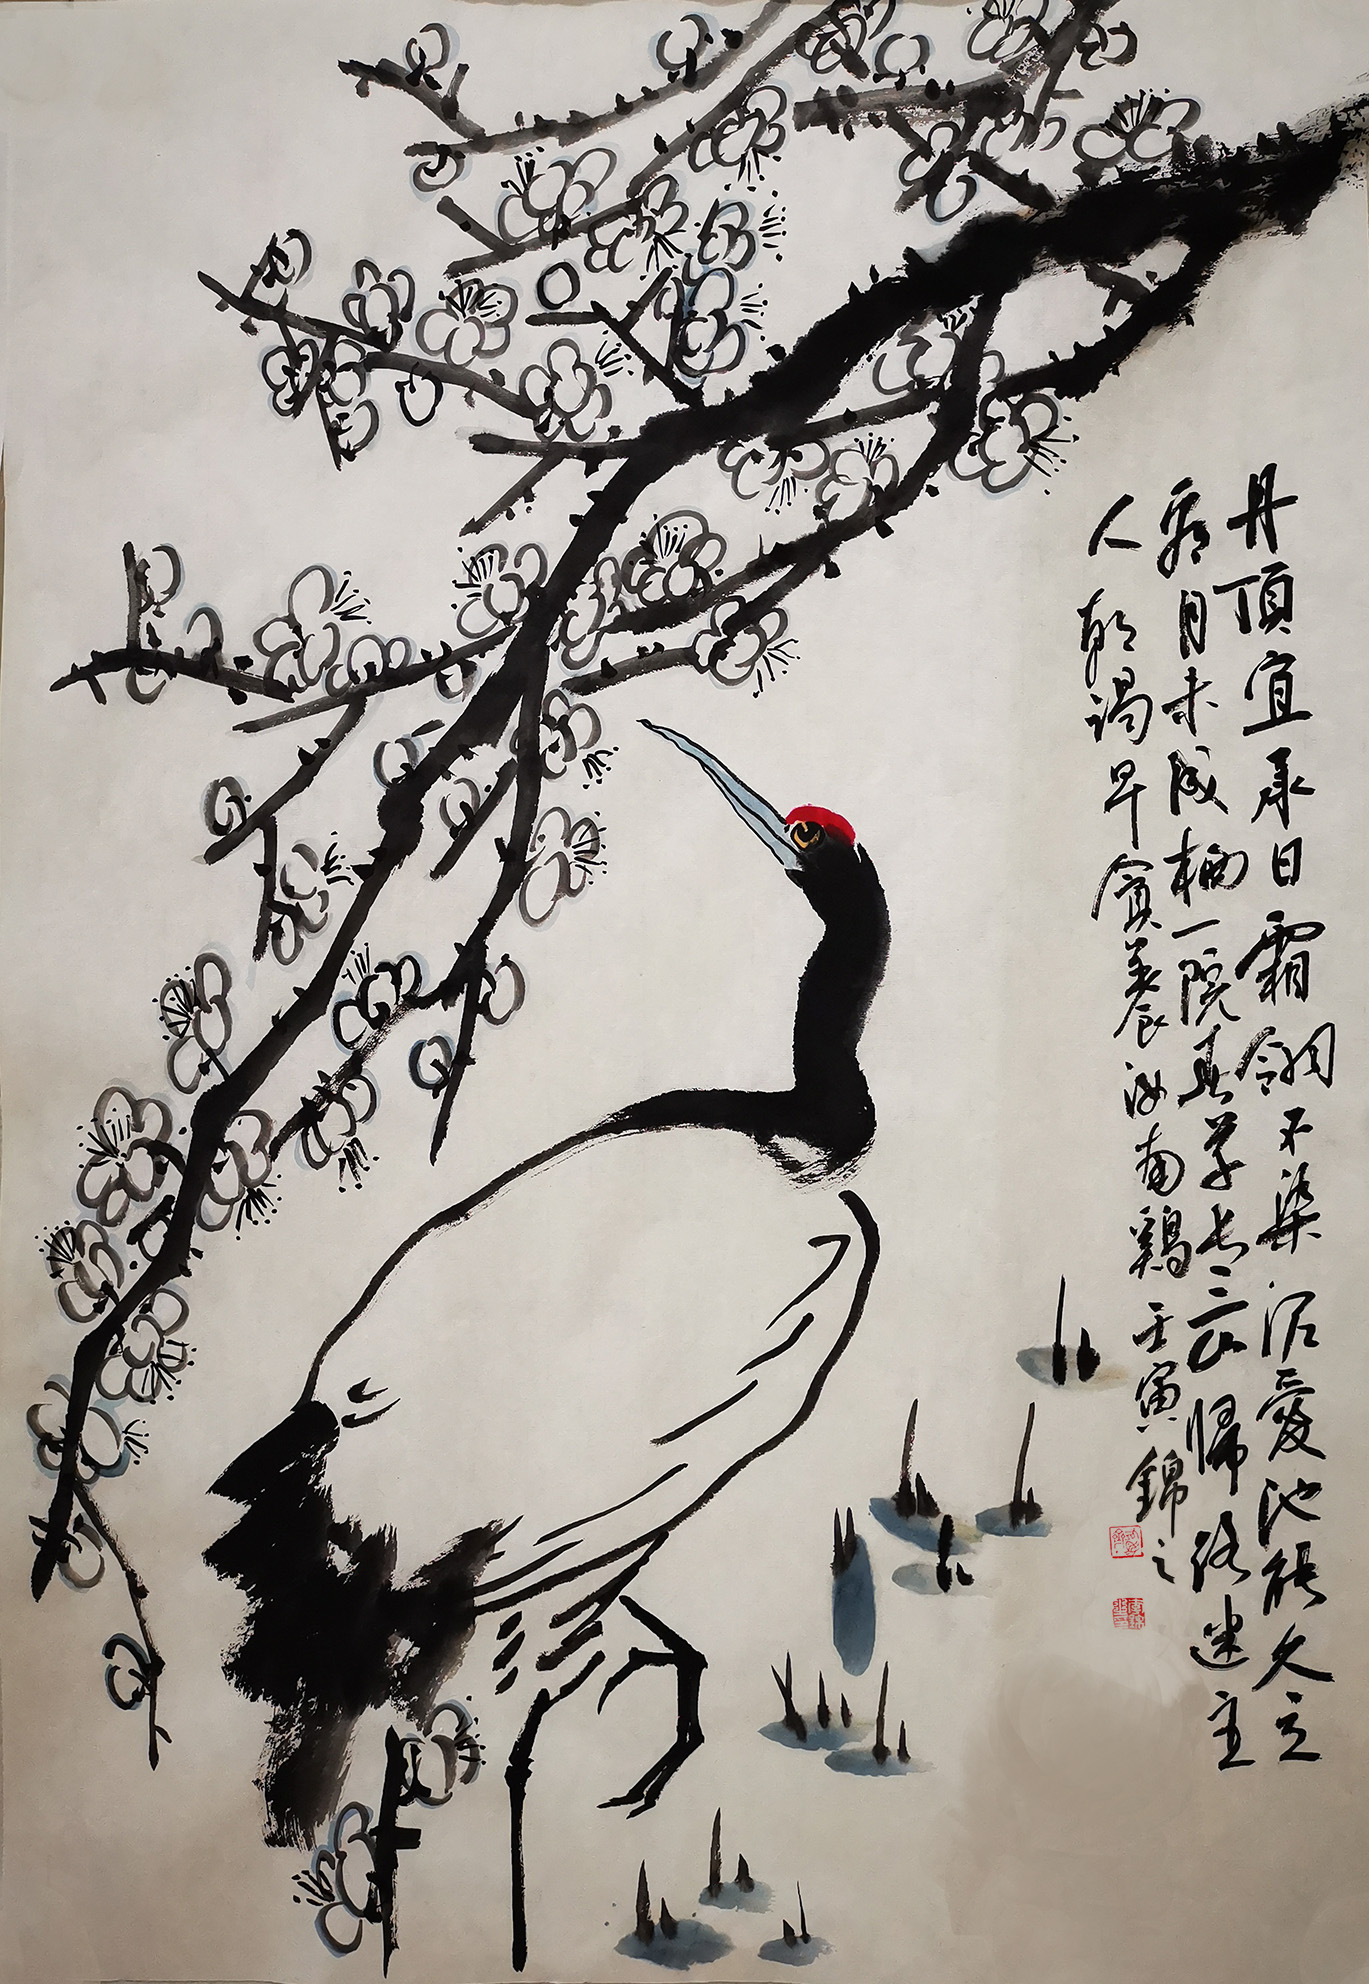 丹頂宜承日霜翎不染泥愛池能久立
看月未成栖一院春草長三山歸路迷主
人朝謁早貪養汝南鷄壬寅錦之